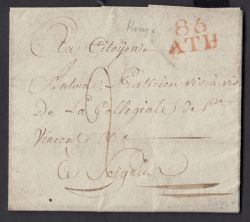 Rouge
86
ATH
La Citoyen
Antoine Graticien vis à vis
De La Collégiale de St
Vincent
a Soignies